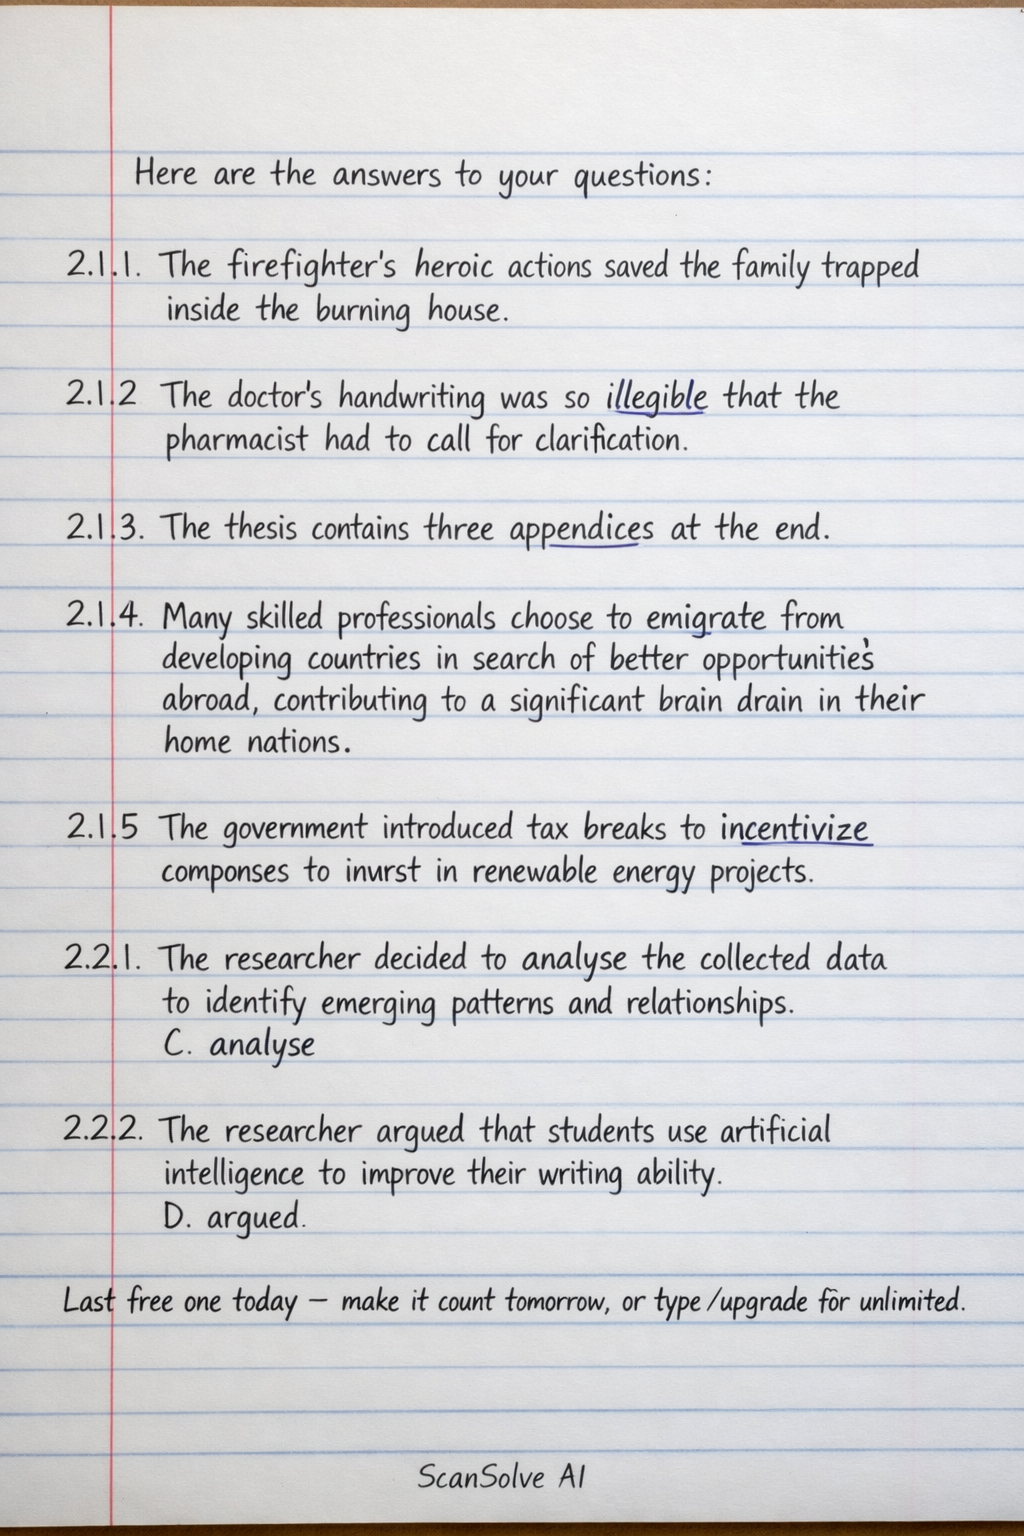 Here are the answers to your questions:
2.1.1. The firefighter's heroic actions saved the family trapped
inside the burning house.
2.1.2 The doctor's handwriting was so illegible that the
pharmacist had to call for clarification.
2.1.3. The thesis contains three appendices at the end.
2.1.4. Many skilled professionals choose to emigrate from
developing countries in search of better opportunities
abroad, contributing to a significant brain drain in their
home nations.
2.1.5 The government introduced tax breaks to incentivize
componses to inurst in renewable energy projects.
2.2.1. The researcher decided to analyse the collected data
to identify emerging patterns and relationships.
C. analyse
2.2.2. The researcher argued that students use artificial
intelligence to improve their writing ability.
D. argued.
Last free one today – make it count tomorrow, or type /upgrade for unlimited.
ScanSolve AI